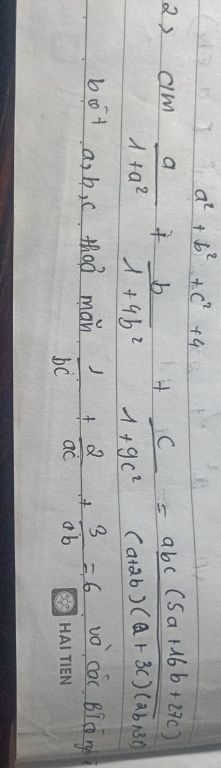 a² + b² + c² + 4
2) c/m a/(1+a²) + b/(1+4b²) + c/(1+9c²) = abc(5a+16b+27c)/(a+2b)(a+3c)(2b+3c)
biết a, b, c thoả mãn 1/bc + 2/ac + 3/ab = 6 và các
HAI TIEN